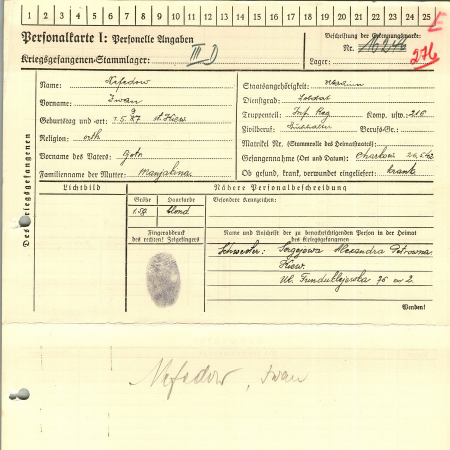 1 2 3 4 5 6 7 8 9 10 11 12 13 14 15 16 17 18 19 20 21 22 23 24 25
Personalkarte I: Personelle Angaben
Kriegsgefangenen-Stammlager: III D
Beschriftung der Erkennungsmarke:
Nr.
Lager:
276
Des Kriegsgefangenen
Name: Nefedow
Vorname: Iwan
Geburtstag und -ort:
Religion: orth
Vorname des Vaters:
Familienname der Mutter:
Staatsangehörigkeit:
Dienstgrad: Soldat
Truppenteil: Inf. Reg Komp. usw.: 216
Zivilberuf: Buchhalter Berufs-Gr.:
Matrikel Nr. (Stammrolle des Heimatstaates):
Gefangennahme (Ort und Datum): Charkow
Ob gesund, krank, verwundet eingeliefert: krank
Lichtbild
Nähere Personalbeschreibung
Größe Haarfarbe Besondere Kennzeichen:
blond
Fingerabdruck
des rechten! Zeigefingers
Name und Anschrift der zu benachrichtigenden Person in der Heimat
des Kriegsgefangenen
Schwester: Sergejewa Alexandra Petrowna
Kiew.
Wenden!
Nefedow, Iwan